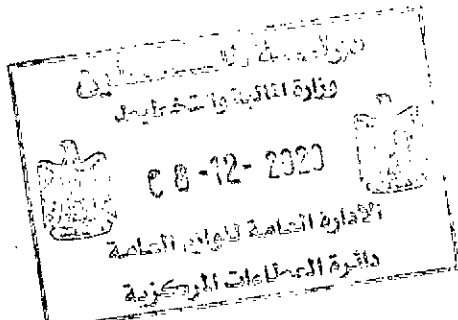 دولة فلسطين
وزارة المالية والتخطيط
08-12-2020
الادارة العامة للوازم العامة
دائرة العطاءات المركزية